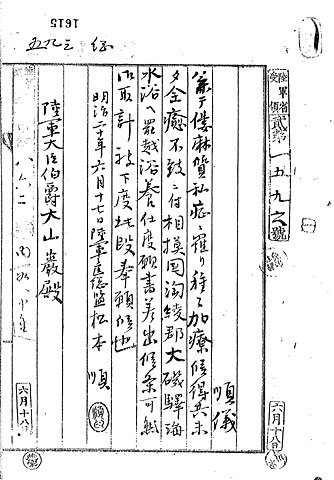 1615
五九三
陸軍省受領
貳第一五九六號
順儀
兼テ僂麻質私症ニ罹リ種々加療候得共未
タ全癒不致ニ付相摸國淘綾郡大磯驛海
水浴ヘ罷越浴養仕度願書差出候条可然
御取計被下度此段奉願候也
明治二十年六月十七日陸軍軍医総監松本順
陸軍大臣伯爵大山巌殿
六月十八日
六月十八日